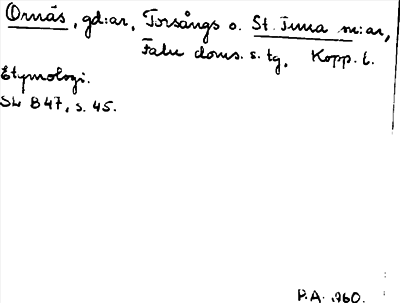 Ornäs, gd:ar, Torsångs o. St. Tuna m:ar,
Falu doms. s. tg, Kopp. l.
Etymologi.
SL B 47, s. 45.
P.A. 1960.